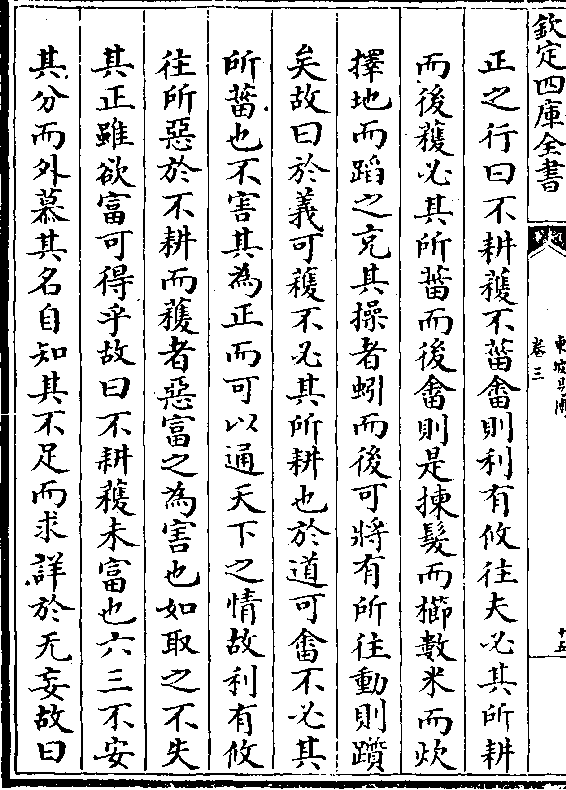 欽定四庫全書
東坡易傳
卷三
十五
正之行曰不耕穫不菑畬則利有攸往夫必其所耕
而後穫必其所菑而後畬則是揀髮而櫛數米而炊
擇地而蹈之充其操者蚓而後可將有所往動則躓
矣故曰於義可穫不必其所耕也於道可畬不必其
所菑也不害其為正而可以通天下之情故利有攸
往所惡於不耕而穫者惡富之為害也如取之不失
其正雖欲富可得乎故曰不耕穫未富也六三不安
其分而外慕其名自知其不足而求詳於无妄故曰